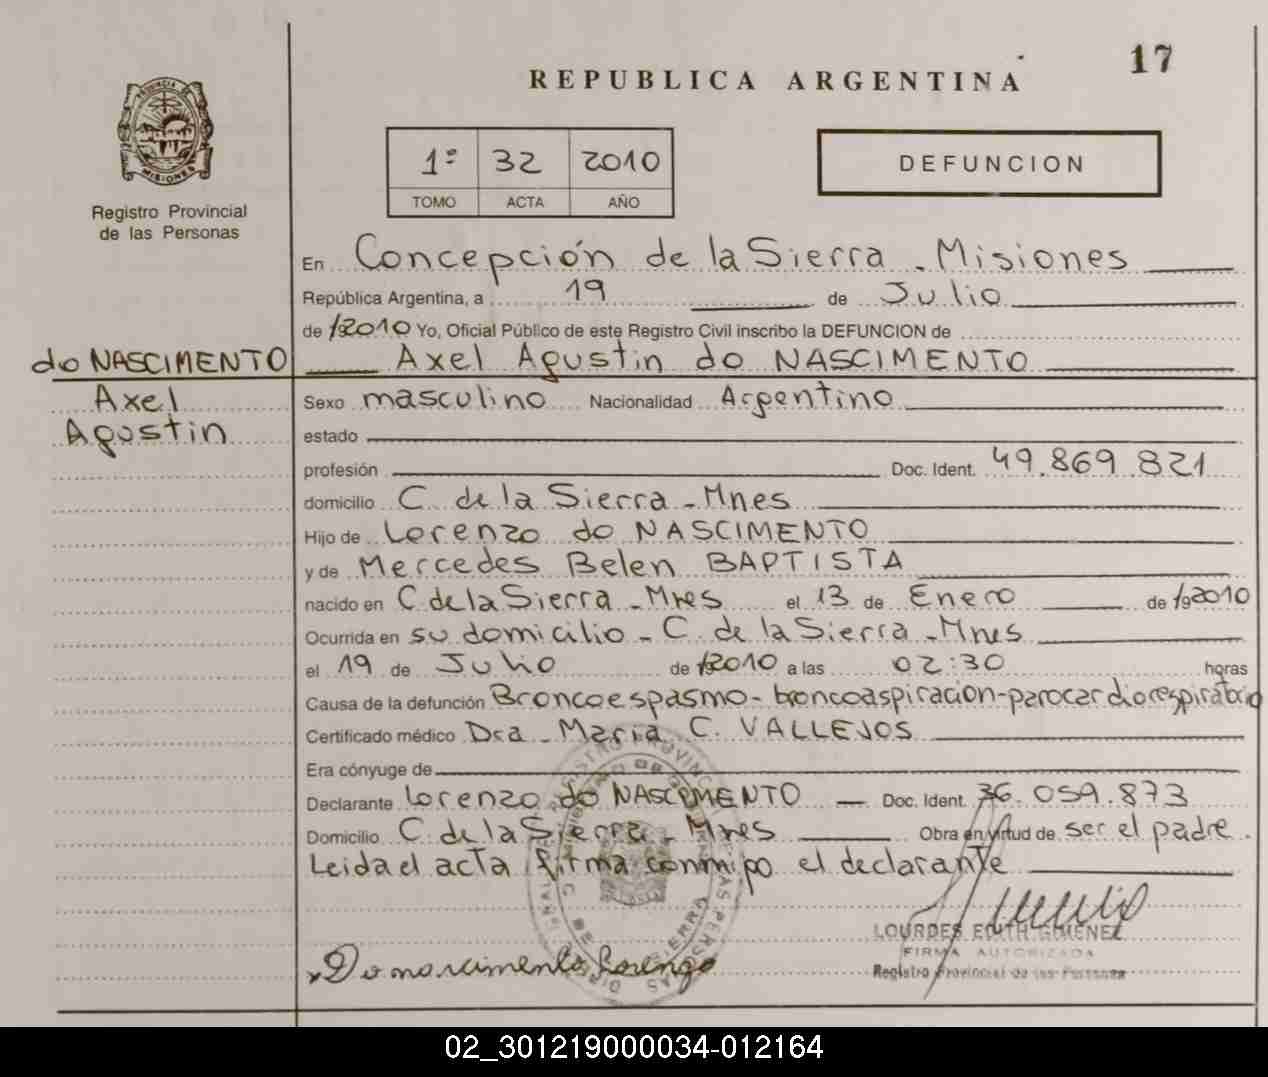 17
REPUBLICA ARGENTINA
PROVINCIA DE
MISIONES
Registro Provincial
de las Personas
1º 32 2010
TOMO ACTA AÑO
DEFUNCION
En Concepción de la Sierra - Misiones
República Argentina, a 19 de Julio
de 2010 Yo, Oficial Público de este Registro Civil inscribo la DEFUNCION de
do NASCIMENTO Axel Agustin do NASCIMENTO
Axel
Agustin
Sexo masculino Nacionalidad Argentino
estado
profesión Doc. Ident. 49.869.821
domicilio C. de la Sierra - Mnes
Hijo de Lorenzo do NASCIMENTO
y de Mercedes Belen BAPTISTA
nacido en C de la Sierra - Mnes el 13 de Enero de 2010
Ocurrida en su domicilio - C. de la Sierra - Mnes
el 19 de Julio de 2010 a las 02:30 horas
Causa de la defunción Broncoespasmo - broncoaspiracion - parocardiorespiratorio
Certificado médico Dra. Maria C. VALLEJOS
Era cónyuge de
Declarante Lorenzo do NASCIMENTO Doc. Ident. 36.059.873
Domicilio C. de la Sierra - Mnes Obra en virtud de ser el padre.
Leida el acta firma conmigo el declarante
LOURDES EDITH GIMENEZ
FIRMA AUTORIZADA
Registro Provincial de las Personas
Do nascimento Lorenzo
02_301219000034-012164